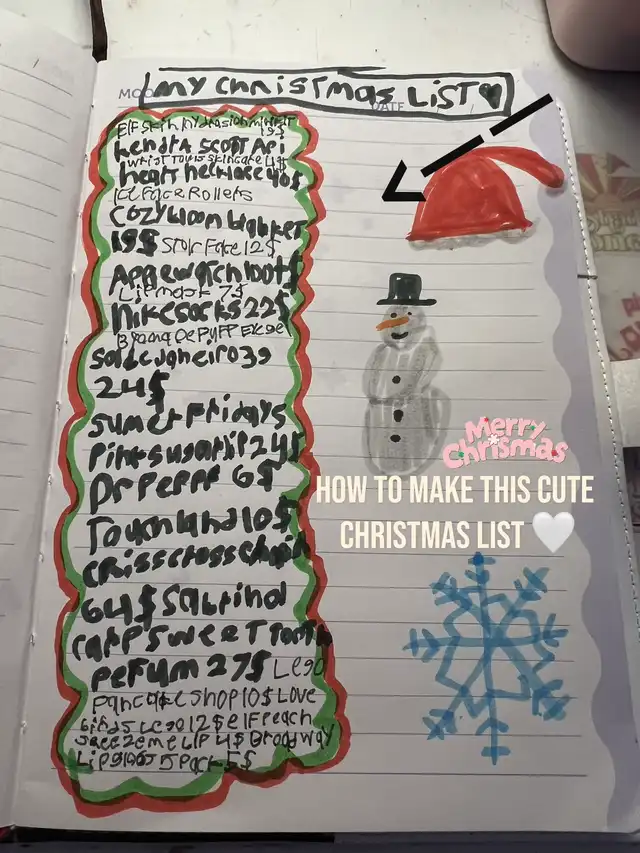 MOO
DATE
My CHRISTMAS LIST
ELF Skin hydrasion mist
19$
kendra scott Api
wrist towls skincare 4$
heart necklace 40$
Ice Face Rollers
Cozy Loom blanket
19$ Stolr Face 12$
Appewatch 100$
Lip mask 7$
Nike socks 22$
Brama De Puff Ex
sol de Janeiro 39
24$
sumer Fridays
Pink sugar lip 24$
Dr Peppr 6$
Touchland 10$
criss cross chair
64$ Sabrina
carp sweet Tooth
Pefum 27$ Lego
pancake shop 10$ Love
birds Lego 12$ elf reach
Lip 4$ Broadway
Lip gloss 5 pack 5$
Merry
Christmas
HOW TO MAKE THIS CUTE
CHRISTMAS LIST 🤍